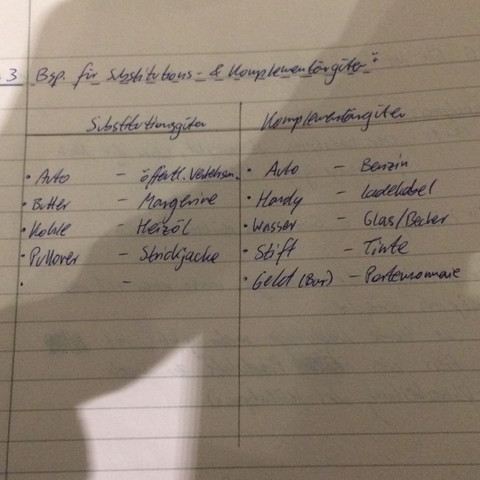 3 Bsp. für Substitutions- & Komplementärgüter"
Substitutionsgüter Komplementärgüter
• Auto - öffentl. Verkehrsm. • Auto - Benzin
• Butter - Margerine • Handy - Ladekabel
• Kohle - Heizöl • Wasser - Glas/Becher
• Pullover - Strickjacke • Stift - Tinte
• - • Geld (Bar) - Portemonnaie